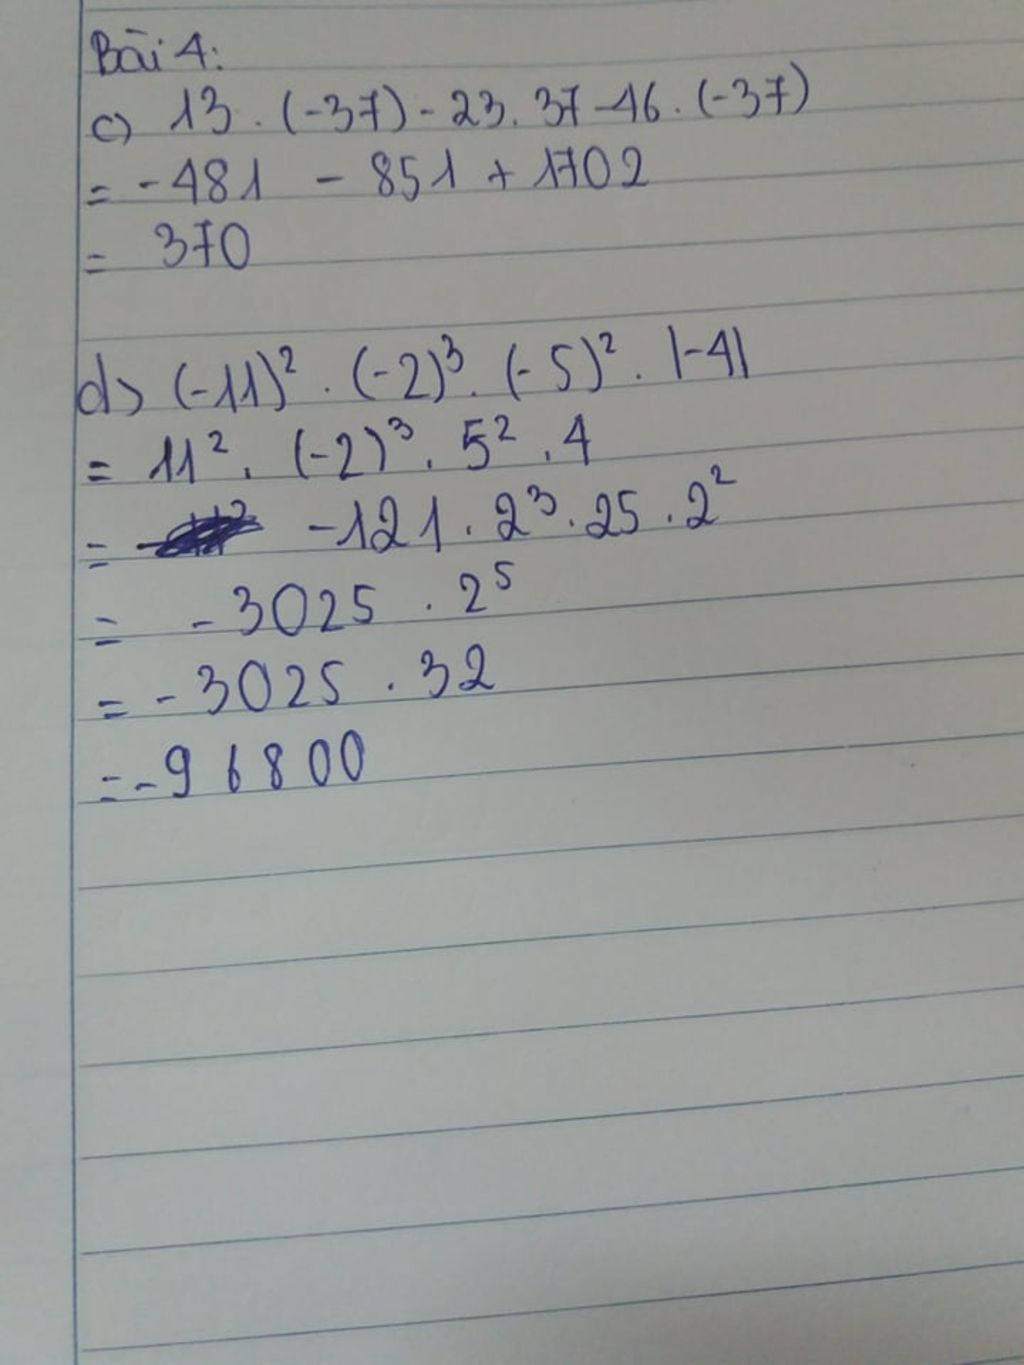 Bài 4:
c) 13 . (-37) - 23. 37 - 46 . (-37)
= -481 - 851 + 1702
= 370
d) (-11)² . (-2)³. (-5)² . |-4|
= 11² . (-2)³ . 5² . 4
= -121 . 2³ . 25 . 2²
= -3025 . 2⁵
= -3025 . 32
= -96800